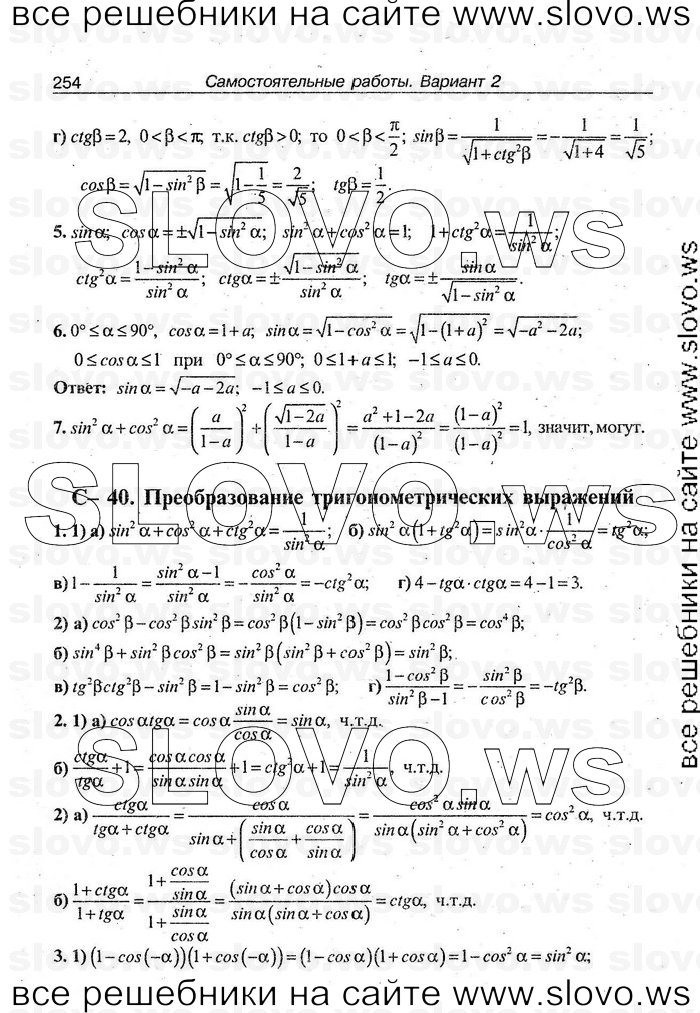 все решебники на сайте www.slovo.ws
254 Самостоятельные работы. Вариант 2
г) ctgβ = 2, 0 < β < π; т.к. ctgβ > 0; то 0 < β < π/2; sinβ = 1/√(1+ctg²β) = −1/√(1+4) = 1/√5;
cosβ = √(1−sin²β) = √(1−1/5) = 2/√5; tgβ = 1/2.
5. sinα; cosα = ±√(1−sin²α); sin²α + cos²α = 1; 1+ctg²α = 1/sin²α;
ctg²α = (1−sin²α)/sin²α; ctgα = ±√(1−sin²α)/sin²α; tgα = ± sinα/√(1−sin²α).
6. 0° ≤ α ≤ 90°, cosα = 1+a; sinα = √(1−cos²α) = √(1−(1+a)²) = √(−a²−2a);
0 ≤ cosα ≤ 1 при 0° ≤ α ≤ 90°; 0 ≤ 1+a ≤ 1; −1 ≤ a ≤ 0.
Ответ: sinα = √(−a−2a); −1 ≤ a ≤ 0.
7. sin²α + cos²α = (a/(1−a))² + (√(1−2a)/(1−a))² = (a²+1−2a)/(1−a)² = (1−a)²/(1−a)² = 1, значит, могут.
С– 40. Преобразование тригонометрических выражений
1. 1) а) sin²α + cos²α + ctg²α = 1/sin²α; б) sin²α(1+tg²α) = sin²α · 1/cos²α = tg²α;
в) 1 − 1/sin²α = (sin²α−1)/sin²α = −cos²α/sin²α = −ctg²α; г) 4 − tgα · ctgα = 4−1 = 3.
2) а) cos²β − cos²β sin²β = cos²β(1−sin²β) = cos²β cos²β = cos⁴β;
б) sin⁴β + sin²β cos²β = sin²β(sin²β + cos²β) = sin²β;
в) tg²βctg²β − sin²β = 1 − sin²β = cos²β; г) (1−cos²β)/(sin²β−1) = −sin²β/cos²β = −tg²β.
2. 1) а) cosαtgα = cosα sinα/cosα = sinα, ч.т.д.
б) ctgα/tgα + 1 = cosα cosα/sinα sinα + 1 = ctg²α + 1 = 1/sin²α, ч.т.д.
2) а) ctgα/(tgα+ctgα) = cosα/(sinα + (sinα/cosα + cosα/sinα)) = cos²α sinα/(sinα(sin²α + cos²α)) = cos²α, ч.т.д.
б) (1+ctgα)/(1+tgα) = (1+cosα/sinα)/(1+sinα/cosα) = (sinα+cosα)cosα/(sinα(sinα+cosα)) = ctgα, ч.т.д.
3. 1) (1−cos(−α))(1+cos(−α)) = (1−cosα)(1+cosα) = 1−cos²α = sin²α;
все решебники на сайте www.slovo.ws
все решебники на сайте www.slovo.ws
SLOVO.ws
SLOVO.ws
SLOVO.ws